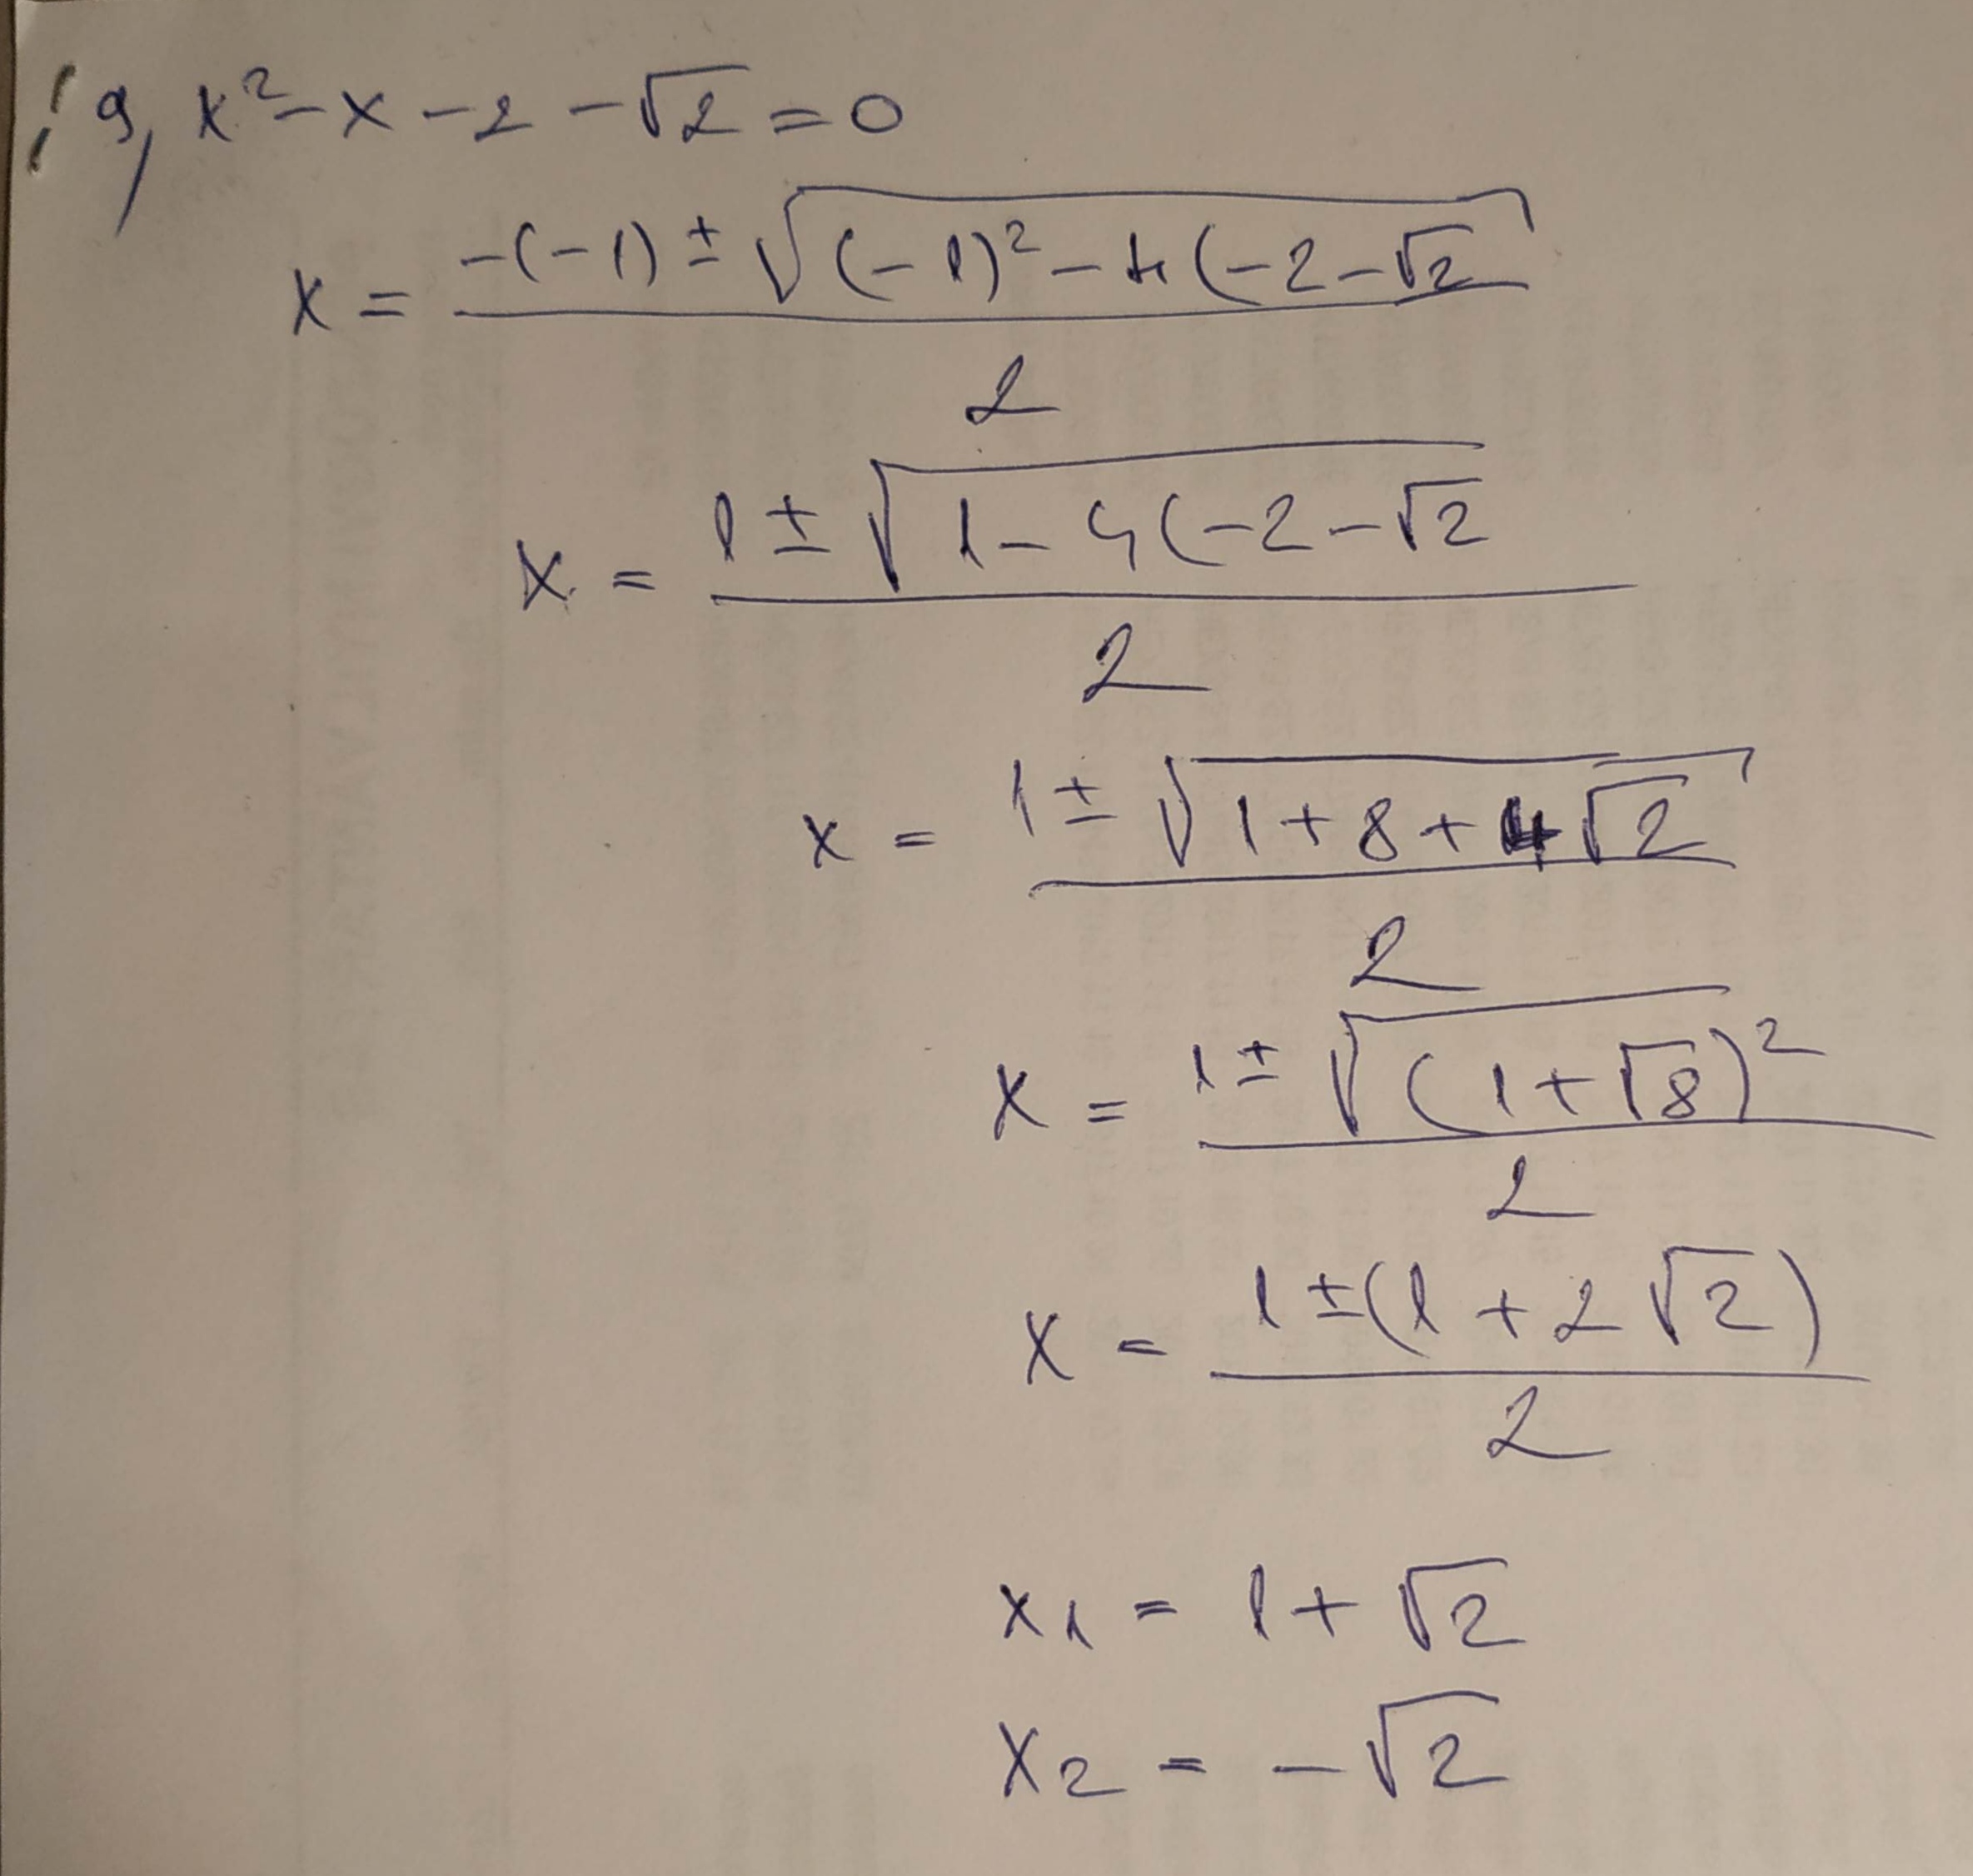 9, x² - x - 2 - √2 = 0
x = (-(-1) ± √((-1)² - 4(-2-√2)) / 2
x = (1 ± √(1 - 4(-2-√2)) / 2
x = (1 ± √(1 + 8 + 4√2)) / 2
x = (1 ± √((1 + √8)²)) / 2
x = (1 ± (1 + 2√2)) / 2
x₁ = 1 + √2
x₂ = -√2